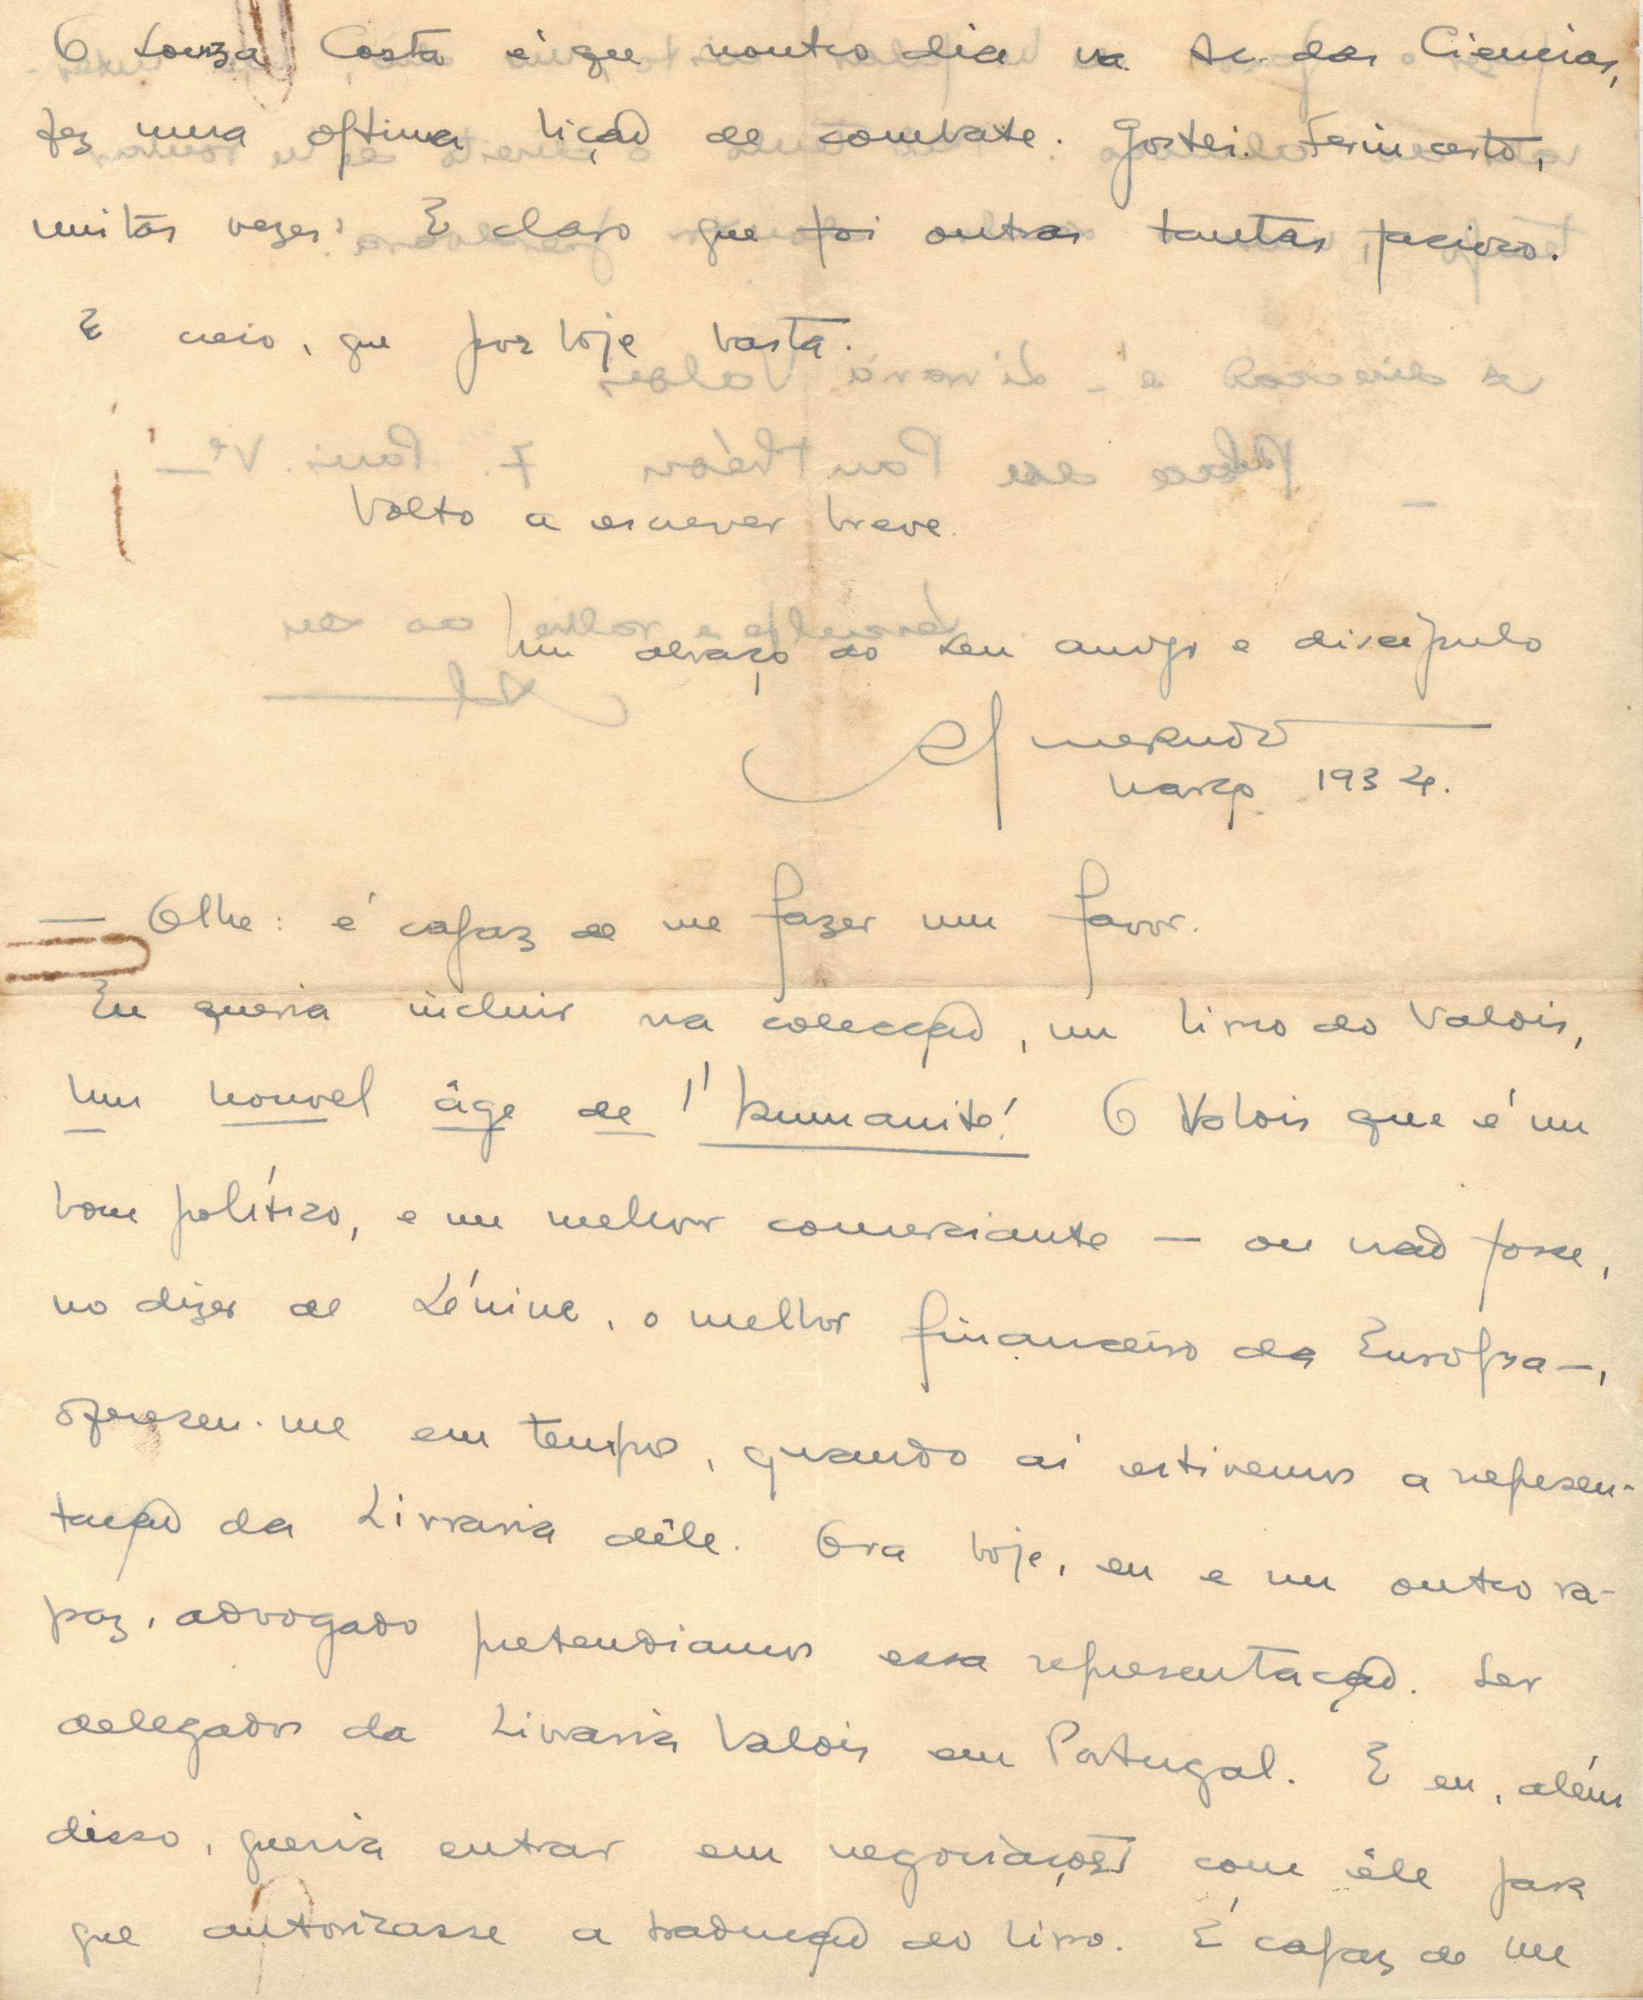 O Souza Costa é que noutro dia na Ac. das Ciencias,
fez uma optima lição de combate. Gostei. Feriu certo,
muitas vezes. E claro que foi outras tantas faccioso.
E creio, que por hoje basta.
Volto a escrever breve.
Um abraço do seu amigo e discípulo
Março 1934.
— Olhe: é capaz de me fazer um favor.
Eu queria incluir na colecção, um livro do Valois,
Um nouvel âge de l'humanité! O Valois que é um
bom político, e um melhor comerciante — ou não fosse,
no dizer de Lénine, o melhor financeiro da Europa —,
ofereceu-me em tempos, quando aí estivemos a represen-
tação da Livraria dêle. Ora hoje, eu e um outro ra-
paz, advogado pretendiamos essa representação. Ser
delegados da Livraria Valois em Portugal. E eu, além
disso, queria entrar em negociações com êle para
que autorizasse a tradução do livro. É capaz de me